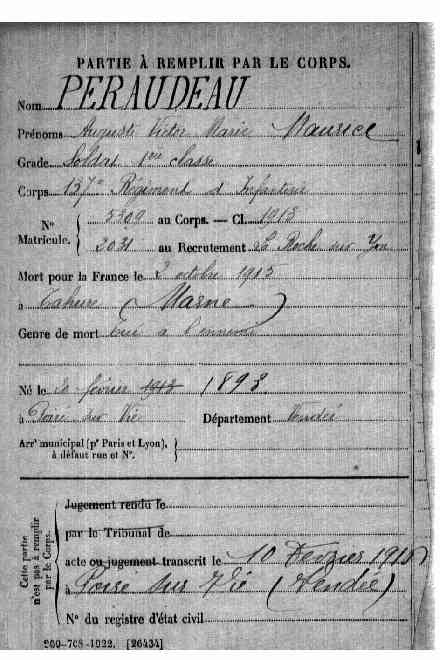 PARTIE À REMPLIR PAR LE CORPS.
Nom PERAUDEAU
Prénoms Auguste Victor Marie Maurice
Grade Soldat 1ere classe
Corps 137e Régiment d Infanterie
No Matricule. 5309 au Corps. — Cl. 1913
2031 au Recrutement La Roche sur Yon
Mort pour la France le 2 octobre 1915
à Tahure (Marne)
Genre de mort tué à l'ennemi
Né le 20 février 1913 1893
à sur Vie Département Vendée
Arrt municipal (pr Paris et Lyon),
à défaut rue et No.
Cette partie n'est pas à remplir par le Corps.
Jugement rendu le
par le Tribunal de
acte ou jugement transcrit le 10 Fevrier 1916
à sur Vie (Vendée)
No du registre d'état civil
[26434]